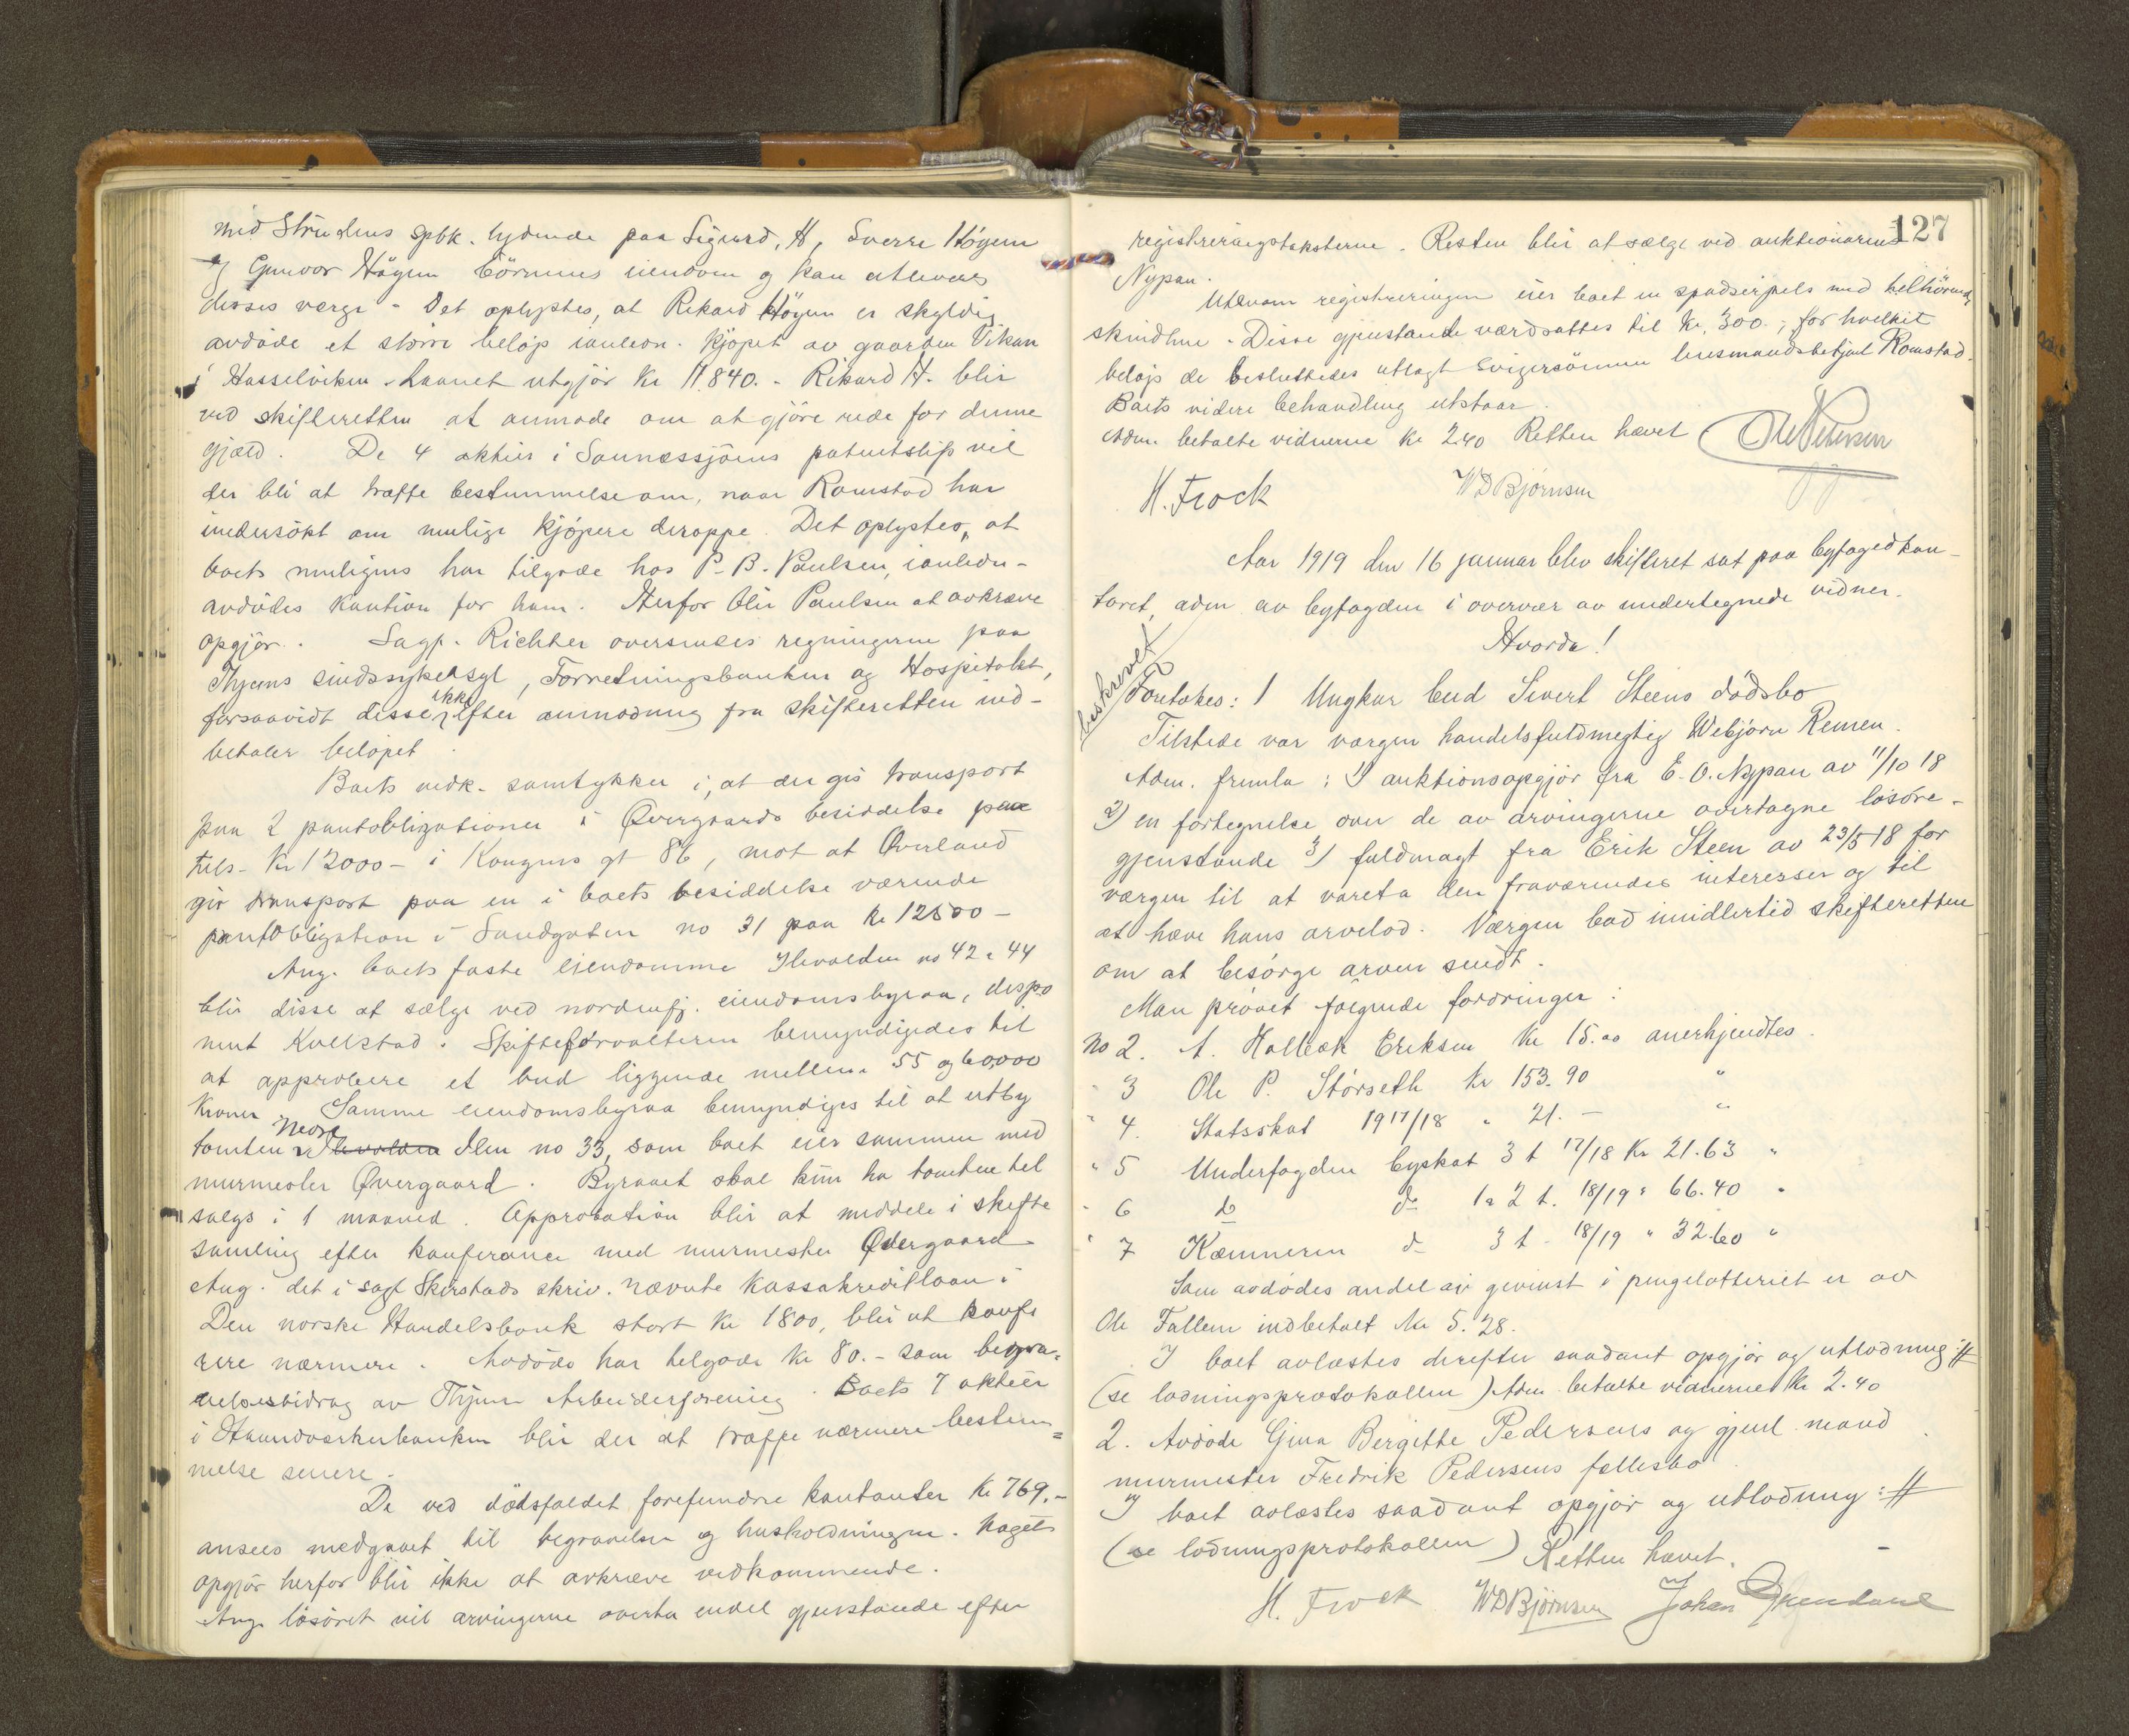 med Strindens spbk. lydende paa Sigurd, H, Sverre Höyem
og Gunvor Höyem börnenes eiendom og kan utleveres
disses verge - Det oplystes, at Rikard Höyem er skyldig
avdöde et större belöp i anledn. kjöpet av gaarden Vikan
i Hasselviken. Laanet utgjör Kr 11840. - Rikard H. blir
ved skifteretten at anmode om at gjöre rede for denne
gjæld. De 4 aktier i Sannessjöens patentslip vil
der bli at træffe bestemmelse om, naar Romstad har
undersökt om mulige kjöpere deroppe. Det oplystes, at
boets muligens har tilgode hos P. B. Paulsen, i anledn-
avdödes kaution for ham. Herfor blir Paulsen at avkræve
opgjör. Sagf. Richter oversendes regningerne paa
Thjems sindssykeasyl, Forretningsbanken og Hospitalet,
forsaavidt disse ikke efter anmodning fra skifteretten ind-
betaler belöpet.
Boets vedk. samtykker i, at der gis transport
paa 2 pantobligationer i Övergaards besiddelse paa
tils. Kr 12000 - i Kongens gt 86, mot at Överland
gir transport paa en i boets besiddelse værende
pantobligation i Sandgaten no 31 paa kr 12500 -
Ang. boets faste eiendomme Ilevolden no 42 a 44
blir disse at sælge ved nordenfj. eiendomsbyraa, dispo
nent Kvelstad. Skifteforvalteren bemyndigedes til
at approbere et bud liggende mellem 55 og 60,000
kroner. Samme eiendomsbyraa bemyndiges til at utby
tomten i Nedre Ilevolden Ilen no 33, som boet eier sammen med
murmester Övergaard. Byraaet skal kun ha tomten til
salgs i 1 maaned. Approbation blir at meddele i skifte
samling efter konferance med murmester Övergaard
Ang. det i sagf Skirstads skriv. nævnte kassakreditlaan i
Den norske Handelsbank stort Kr 1800, blir at konfe
rere nærmere. Avdöde har tilgode Kr 80.- som begra=
velsesbidrag av Thjems Arbeiderforening. Boets 7 aktier
i Haandverkerbanken blir der at træffe nærmere bestem=
melse senere.
De ved dödsfaldet forefundne kontanter Kr 769.-
ansees medgaaet til begravelse og husholdningen. Noget
opgjör herfor blir ikke at avkræve vedkommende.
Ang. lösöret vil arvingerne overta endel gjenstande efter
127
registreringstaksterne. Resten blir at sælge ved auktionarius
Nypan.
Utenom registreringen eier boet en spadserpels med tilhörende
skindhue. Disse gjenstande værdsattes til Kr. 300.; for hvilket
belöp de besluttedes utlagt svigersönnen lensmandsbetjent Romstad.
Boets videre behandling utstaar.
Adm. betalte vidnerne kr 2.40 Retten hævet Ole Petersen
H. Frock WD Björnsen
Aar 1919 den 16 januar blev skifteret sat paa byfogedkon-
toret, adm av byfogden i overvær av undertegnede vidner.
Hvorda!
beskrevet
Foretokes: 1 Ungkar Bend Sivert Steens dödsbo
Tilstede var vergen handelsfuldmegtig Vebjörn Remen.
Adm. fremla: 1) auktionsopgjör fra E. O. Nypan av 11/10 18
2) en fortegnelse over de av arvingerne overtagne lösöre-
gjenstande 3) fuldmagt fra Erik Steen av 23/5 18 for
vergen til at vareta den fraværendes interesser og til
at hæve hans arvelod. Vergen bad imidlertid skifteretten
om at besörge arven sendt.
Man prövet fölgende fordringer:
No 2. A. Holbæk Eriksen Kr 15.00 anerkjendtes.
" 3 Ole P. Störseth Kr 153.90 "
" 4. Statsskat 1917/18 " 21. - "
" 5 Underfogden byskat 3 t 17/18 Kr 21.63 "
" 6 do do 1 a 2 t. 18/19 " 66.40 "
" 7 Kæmneren d- 3 t - 18/19 " 32.60 "
Som avdödes andel av gevinst i pengelotteriet er av
Ole Fallem indbetalt Kr 5.28.
I boet avlæstes derefter saadant opgjör og utlodning: #
(se lodningsprotokollen) Adm. betalte vidnerne Kr 2.40
2. Avdöde Gina Bergitte Pedersens og gjenl. mand
murmester Fredrik Pedersens fællesbo
I boet avlæstes saadant opgjör og utlodning: #
(se lodningsprotokollen) Retten hævet.
H. Frock WD Björnsen Johan